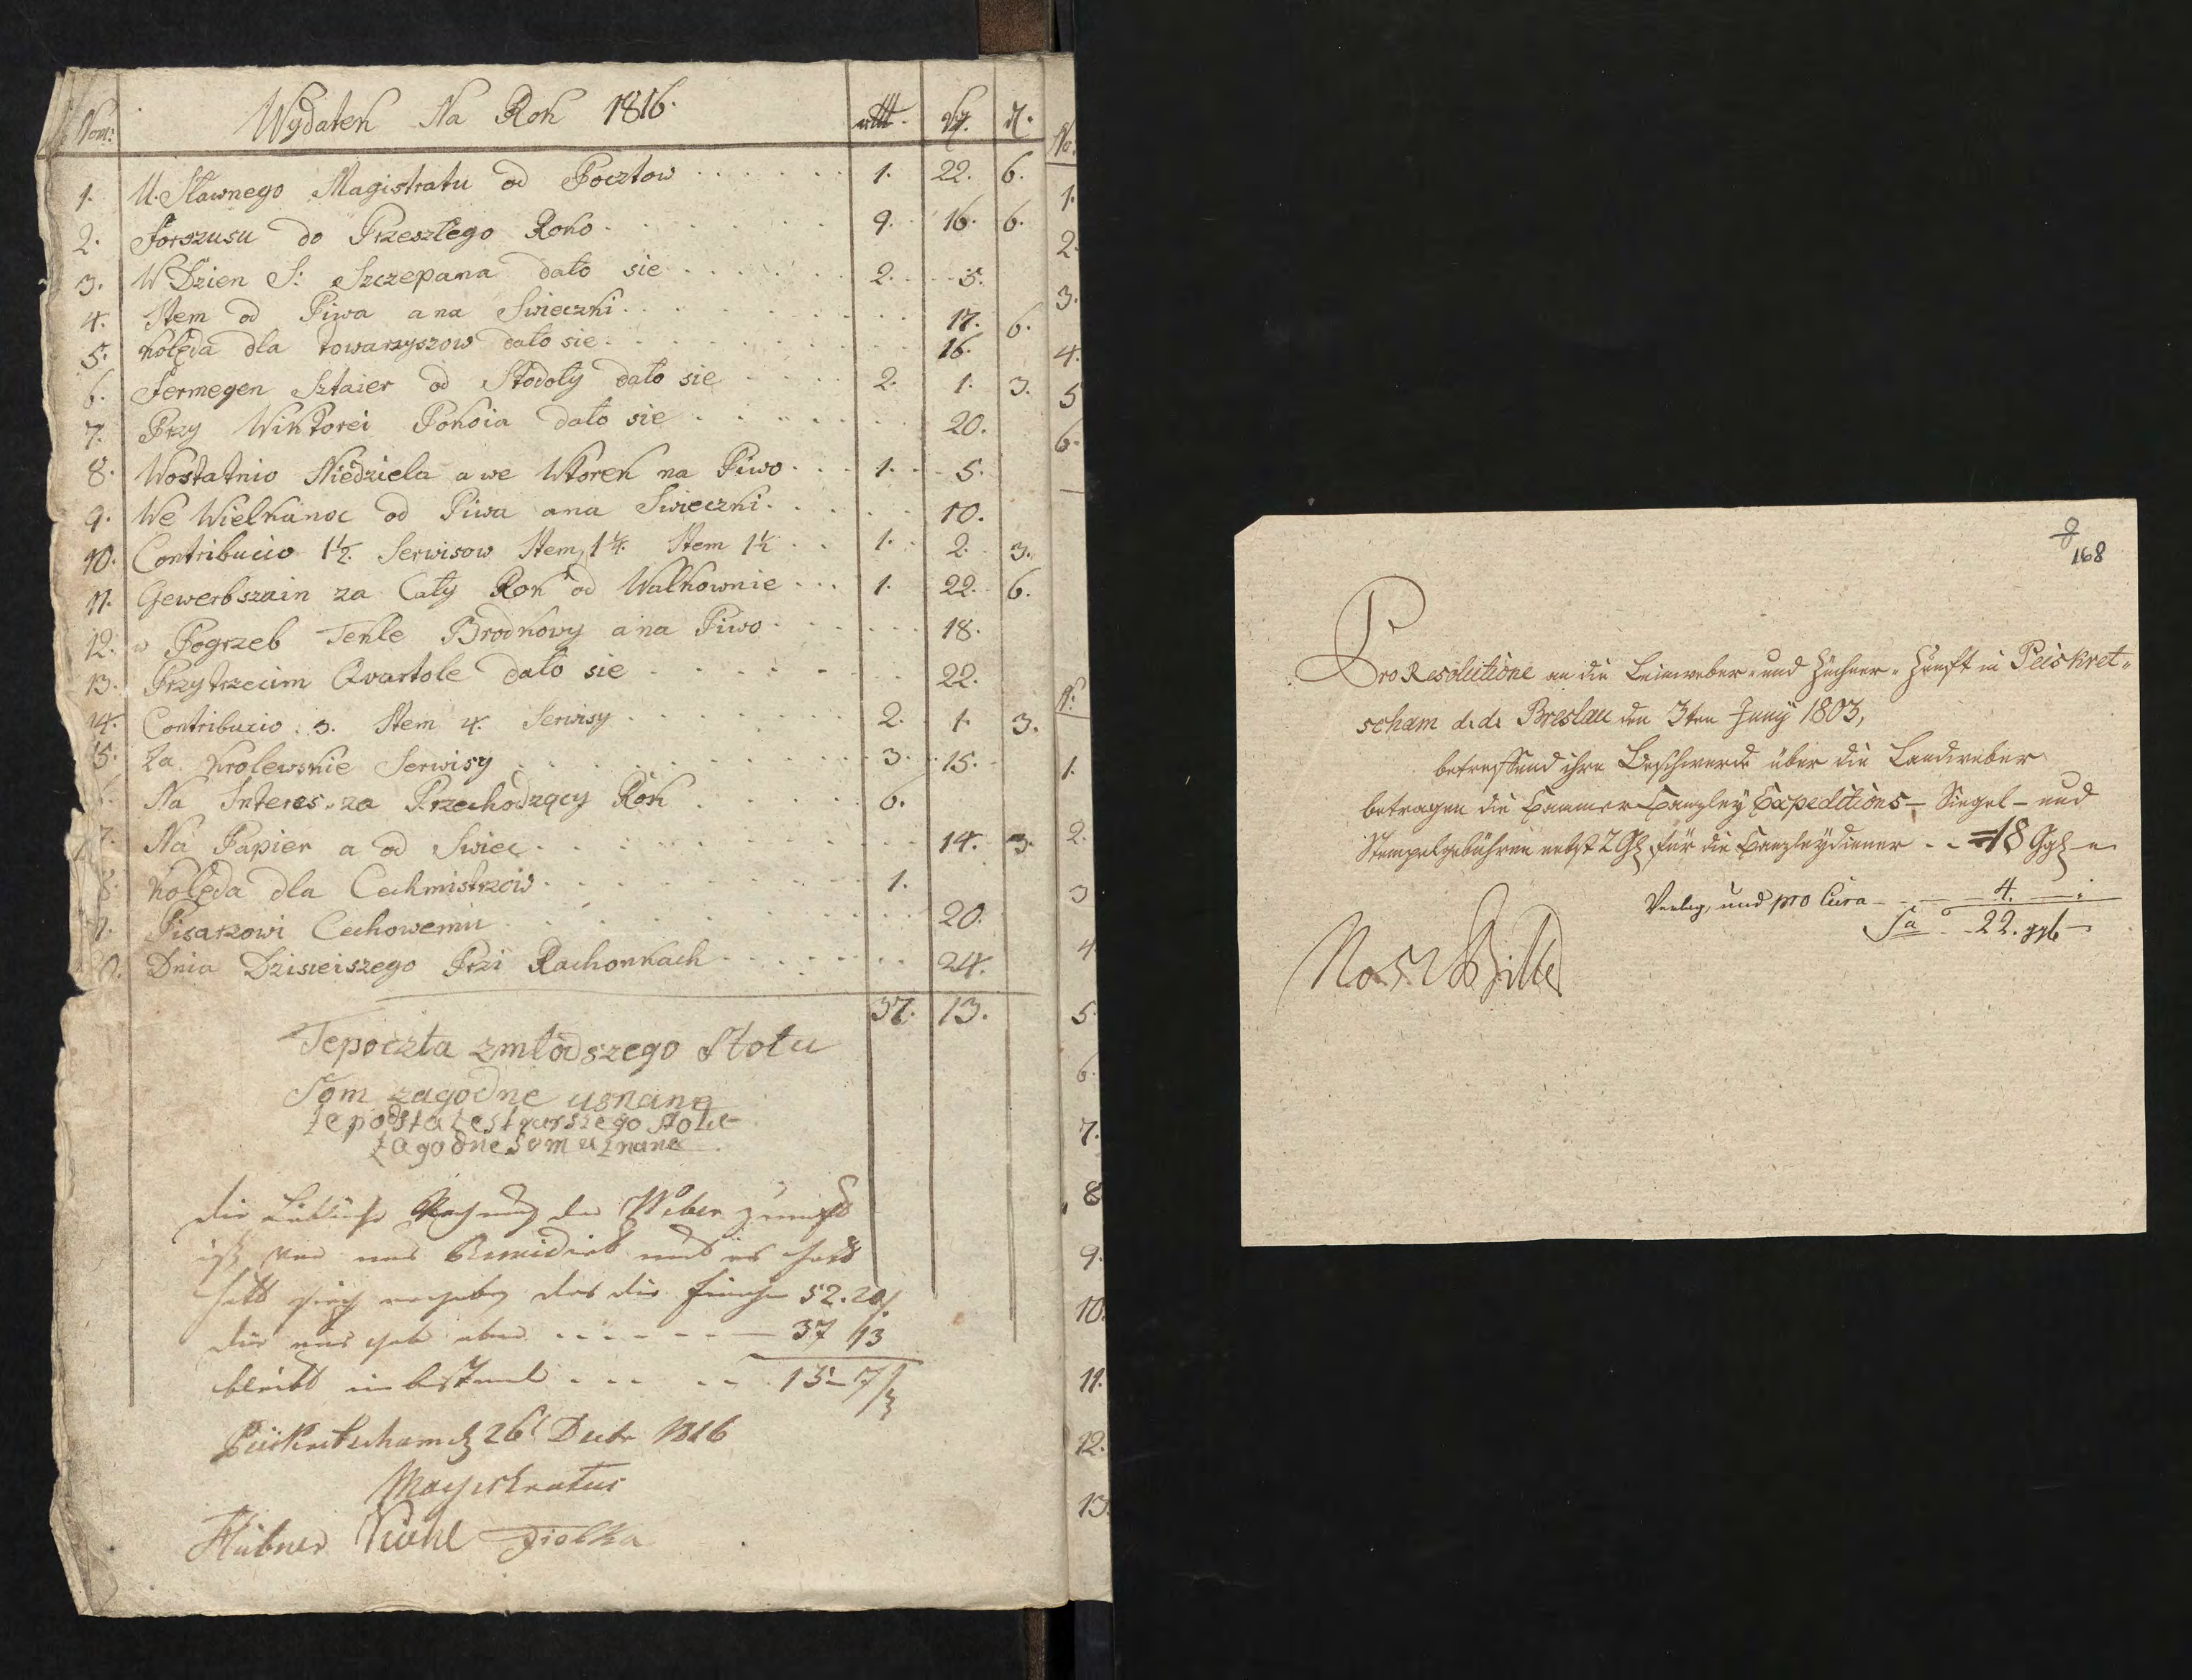 Num: Wydatek Na Rok 1816.
1. U. Sławnego Magistratu od Pocztow 1. 22. 6.
2. Forszusu do Przeszłego Roko 9. 16. 6.
3. W Dzien S: Szczepana dało sie 2. 5.
4. Item od Piwa a na Swieczki 17. 6.
5. kolęda dla towarzyszow dało sie 16.
6. Fermegen Sztaier od Stodoły dało sie 2. 1. 3.
7. Przy Wiktorei Pokoia dało sie 20.
8. Wostatnio Niedziela a we Wtorek na Piwo 1. 5.
9. We Wielkanoc od Piwa ana Swieczki 10.
10. Contribucio 1½ Serwisow Item 1¼ Item 1½ 1. 2. 3.
11. Gewerbszain za Cały Rok od Walkownie 1. 22. 6.
12. w Pogrzeb Tekle Brodkowy ana Piwo 18.
13. Przytrzecim Qvartole dało sie 22.
14. Contribucio 3. Item 4. Serwisy 2. 1. 3.
15. Za krolewskie Serwisy 3. 15.
Na Interes za Przechodzący Rok 6.
7. Na Papier a od Swiec 14. 3.
8. kolęda dla Cechmistrzow 1.
Pisarzowi Cechowemu 20.
Dnia Dzisieiszego Przi Rachonkach 24.
37. 13.
Tepoczta zmłodszego Stołu
Som zagodne usnane
te poczta zestarszego stołu
zagodne som uznane
die Rechnung der Weber
ist von uns Revidirt und es hatt
das die 52. 20
37 13
bleibt im bestand 15 - 7
26t Decbr 1816
Magistratus
Hübner
No.
1.
2.
3.
4.
5
6.
N:
1.
2.
3
4.
5.
6.
7.
8
9.
10.
11.
12.
13.
168
Pro Resolutione an die Leinweber- und Züchner-Zunft in Peiskret-
scham d. d. Breslau den 3ten Juny 1803,
betreffend ihre Beschwerde über die Landweber
betragen die Cammer-Canzley Expeditions- Siegel- und
Stempelgebühren nebst 2 Gl. für die Canzleydiener 18 Ggl
Verlag, und pro Cura 4.
Sa 22. ggl